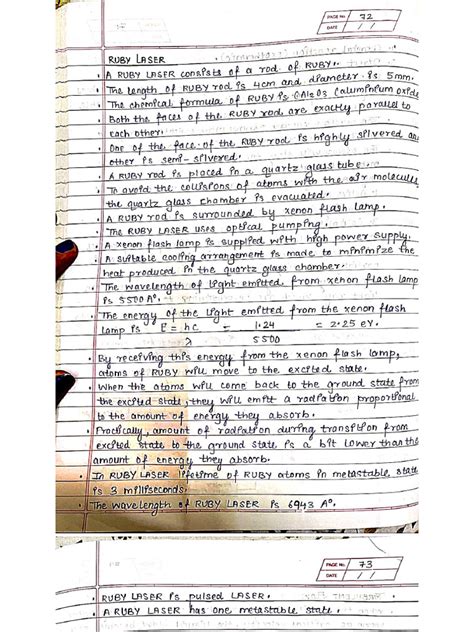 PAGE No. 72
DATE / /
RUBY LASER
• A RUBY LASER consists of a rod of RUBY.
• The length of RUBY rod is 4cm and diameter is 5mm.
• The chemical formula of RUBY is Al2O3 (aluminium oxide
• Both the faces of the RUBY rod are exactly parallel to
each other.
• One of the face of the RUBY rod is highly silvered and
other is semi-silvered.
• A RUBY rod is placed in a quartz glass tube.
• To avoid the collisions of atoms with the air molecules
the quartz glass chamber is evacuated.
• A RUBY rod is surrounded by xenon flash lamp.
• The RUBY LASER uses optical pumping.
• A xenon flash lamp is supplied with high power supply.
• A suitable cooling arrangement is made to minimize the
heat produced in the quartz glass chamber.
• The wavelength of light emitted from xenon flash lamp
is 5500 A°.
• The energy of the light emitted from the xenon flash
lamp is E = hc = 1.24 = 2.25 eV.
λ 5500
• By receiving this energy from the xenon flash lamp,
atoms of RUBY will move to the excited state.
• When the atoms will come back to the ground state from
the excited state, they will emit a radiation proportional
to the amount of energy they absorb.
• Practically, amount of radiation during transition from
excited state to the ground state is a bit lower than the
amount of energy they absorb.
• In RUBY LASER lifetime of RUBY atoms in metastable state
is 3 milliseconds.
• The wavelength of RUBY LASER is 6943 A°.
PAGE No. 73
DATE / /
• RUBY LASER is pulsed LASER.
• A RUBY LASER has one metastable state.